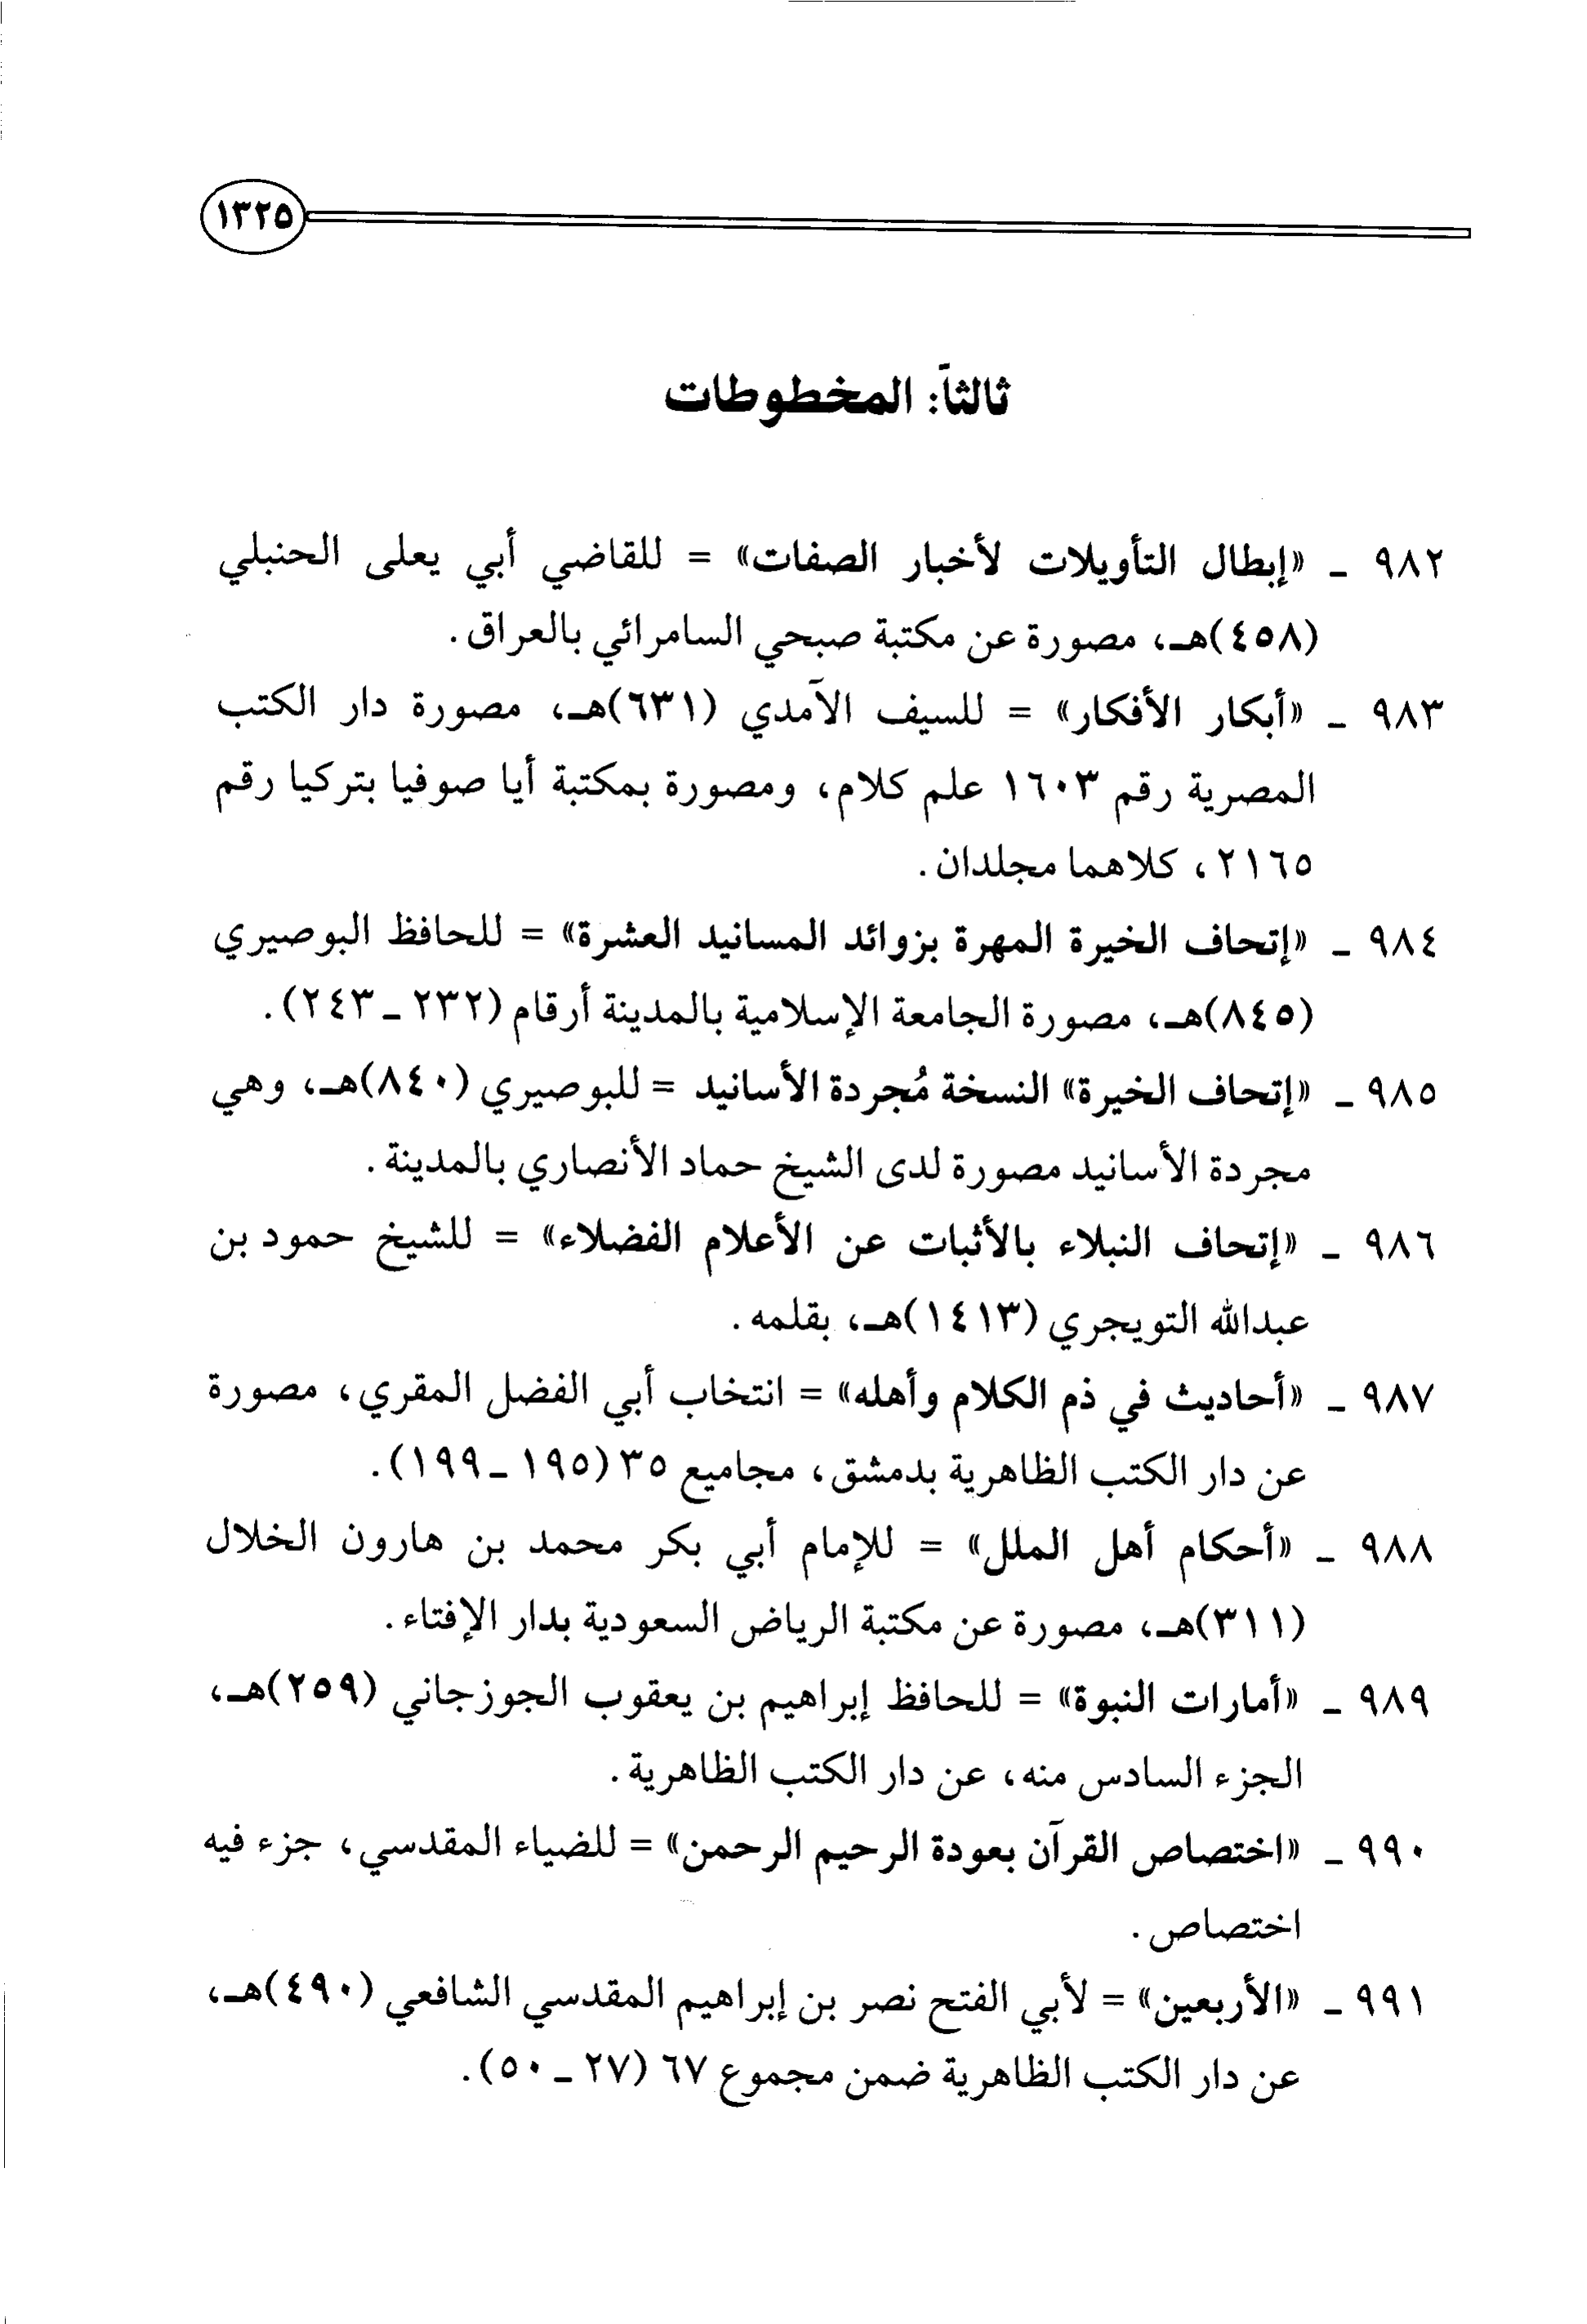 ١٣٢٥
ثالثاً: المخطوطات
٩٨٢ ـ «إبطال التأويلات لأخبار الصفات» = للقاضي أبي يعلى الحنبلي
(٤٥٨)هـ، مصورة عن مكتبة صبحي السامرائي بالعراق.
٩٨٣ ـ «أبكار الأفكار» = للسيف الآمدي (٦٣١)هـ، مصورة دار الكتب
المصرية رقم ١٦٠٣ علم كلام، ومصورة بمكتبة أيا صوفيا بتركيا رقم
٢١٦٥، كلاهما مجلدان.
٩٨٤ ـ «إتحاف الخيرة المهرة بزوائد المسانيد العشرة» = للحافظ البوصيري
(٨٤٥)هـ، مصورة الجامعة الإسلامية بالمدينة أرقام (٢٣٢ ـ ٢٤٣).
٩٨٥ ـ «إتحاف الخيرة» النسخة مُجردة الأسانيد = للبوصيري (٨٤٠)هـ، وهي
مجردة الأسانيد مصورة لدى الشيخ حماد الأنصاري بالمدينة.
٩٨٦ ـ «إتحاف النبلاء بالأثبات عن الأعلام الفضلاء» = للشيخ حمود بن
عبدالله التويجري (١٤١٣)هـ، بقلمه.
٩٨٧ ـ «أحاديث في ذم الكلام وأهله» = انتخاب أبي الفضل المقري، مصورة
عن دار الكتب الظاهرية بدمشق، مجاميع ٣٥ (١٩٥ ـ ١٩٩).
٩٨٨ ـ «أحكام أهل الملل» = للإمام أبي بكر محمد بن هارون الخلال
(٣١١)هـ، مصورة عن مكتبة الرياض السعودية بدار الإفتاء.
٩٨٩ ـ «أمارات النبوة» = للحافظ إبراهيم بن يعقوب الجوزجاني (٢٥٩)هـ،
الجزء السادس منه، عن دار الكتب الظاهرية.
٩٩٠ ـ «اختصاص القرآن بعودة الرحيم الرحمن» = للضياء المقدسي، جزء فيه
اختصاص.
٩٩١ ـ «الأربعين» = لأبي الفتح نصر بن إبراهيم المقدسي الشافعي (٤٩٠)هـ،
عن دار الكتب الظاهرية ضمن مجموع ٦٧ (٢٧ ـ ٥٠).